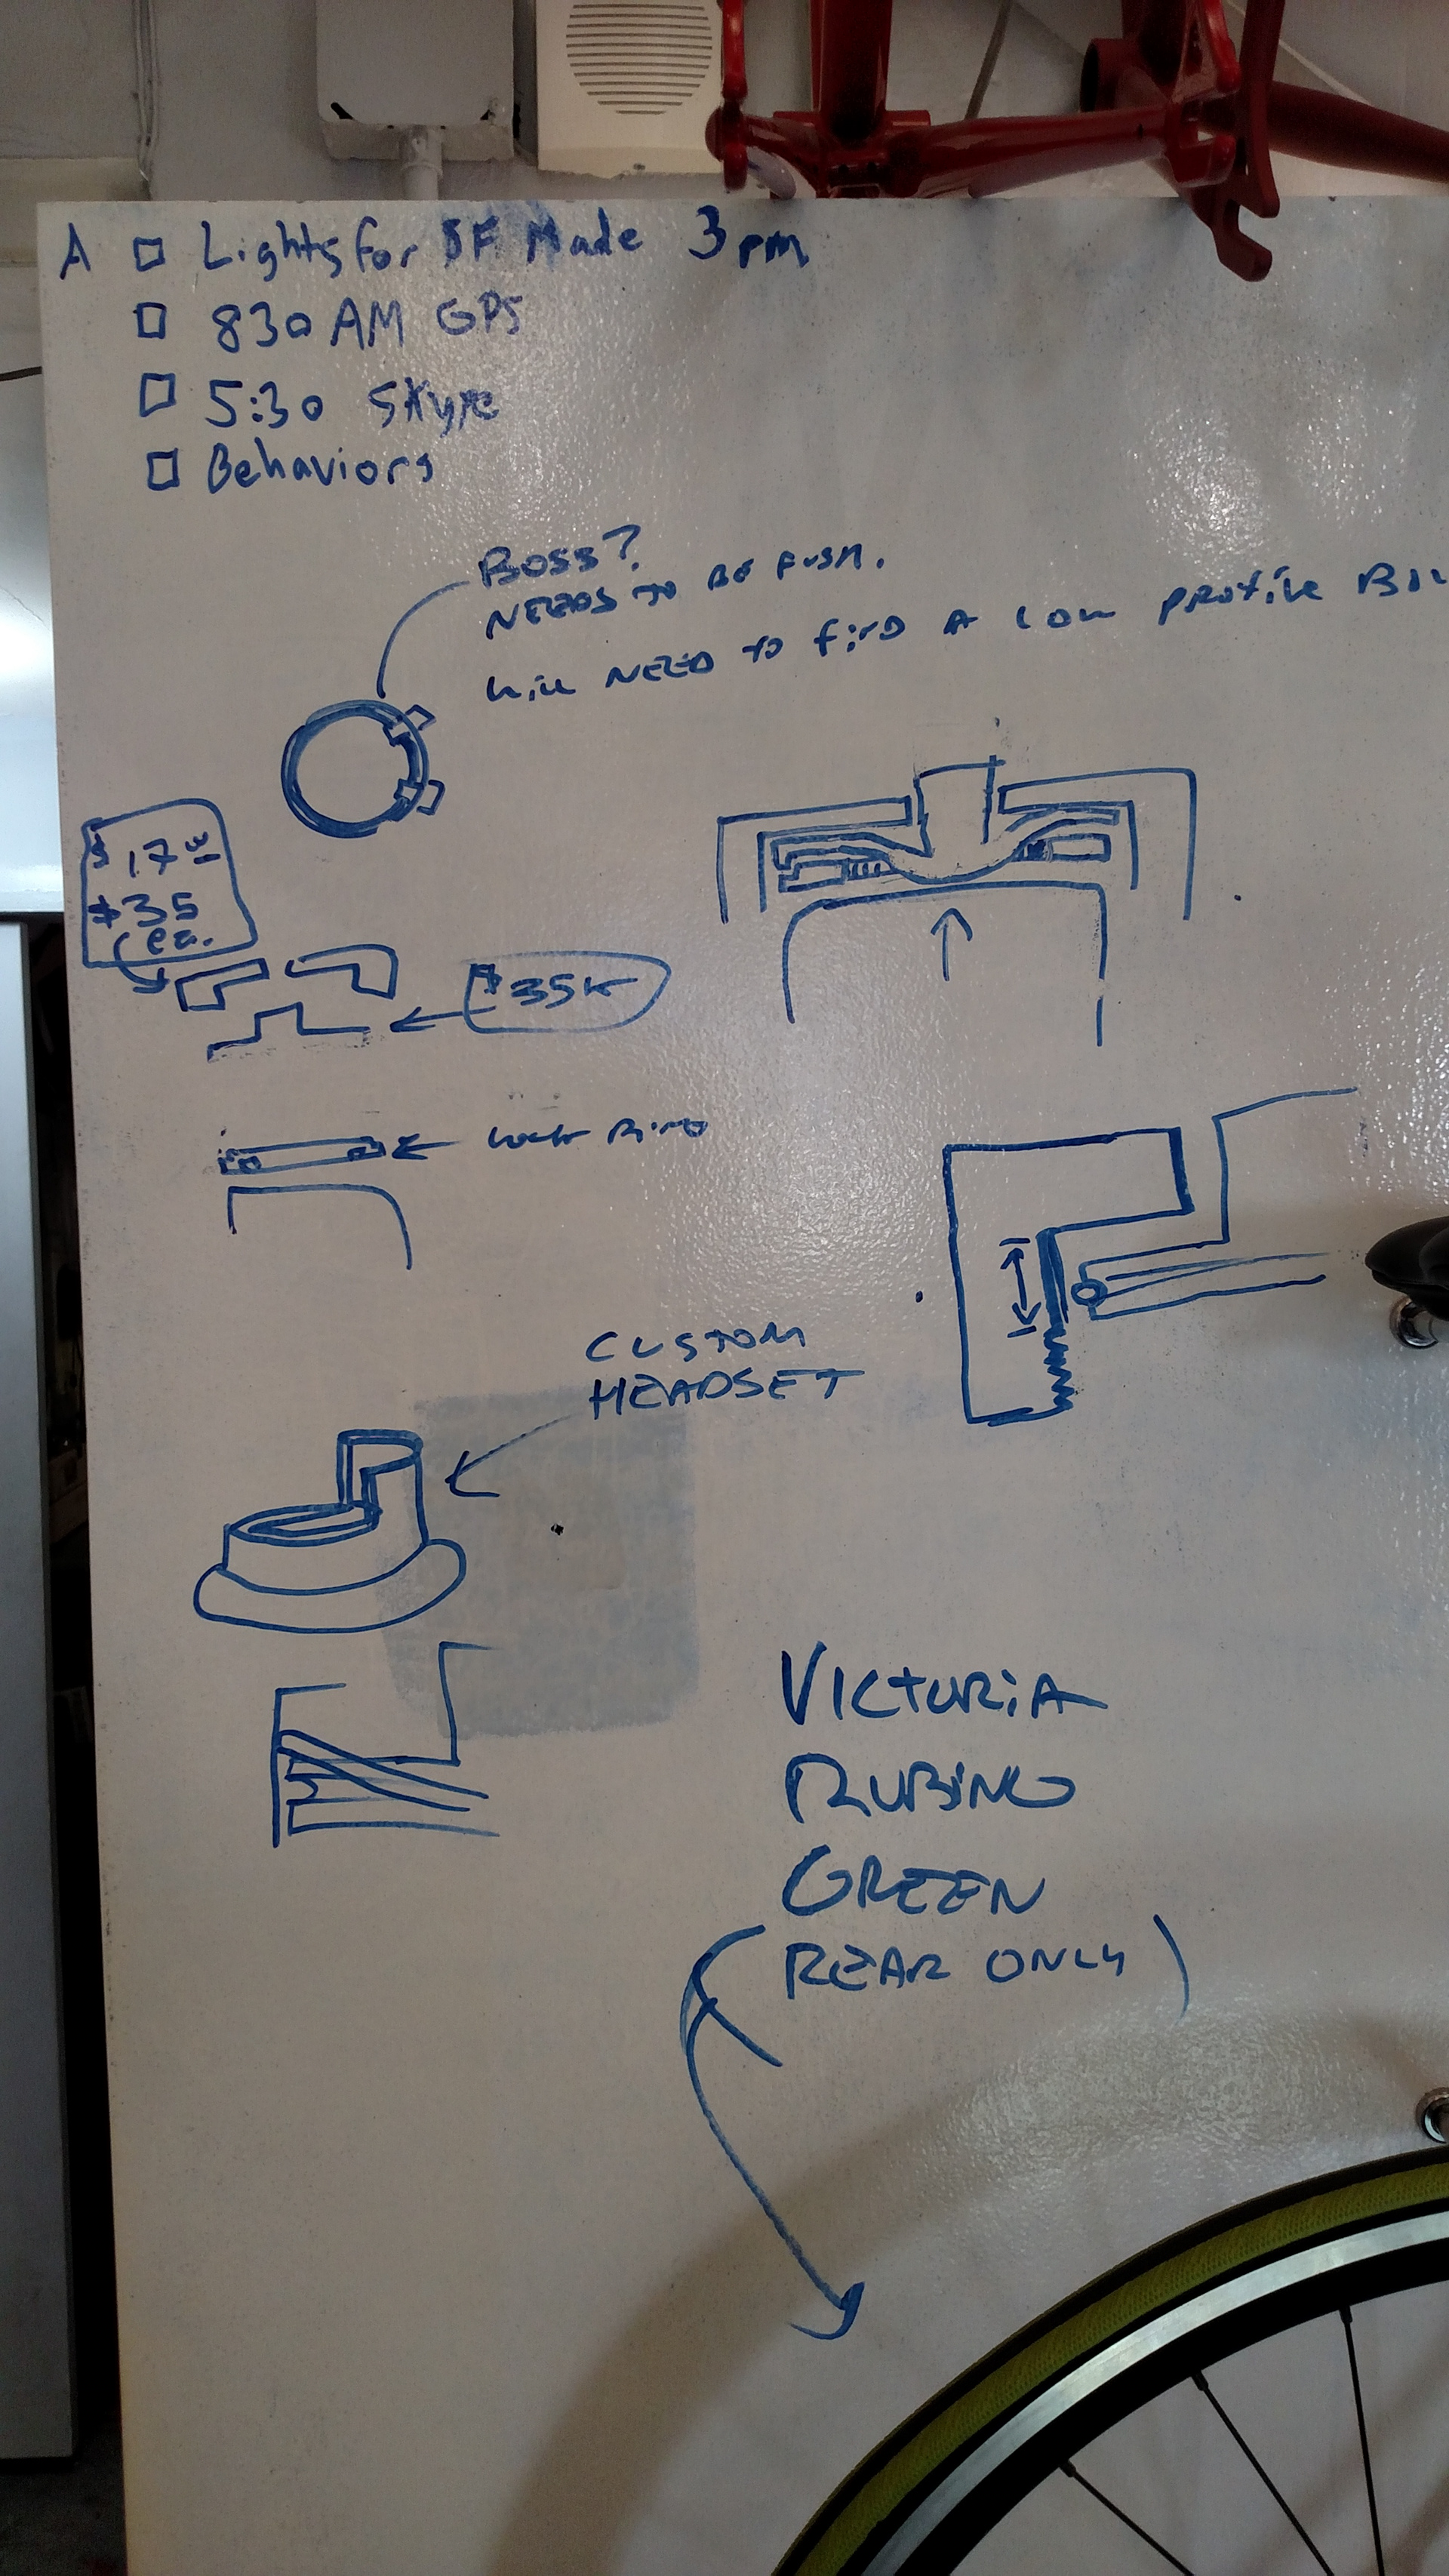 A □ Lights for SF Made 3pm
□ 830 AM GPS
□ 5:30 Skype
□ Behaviors
BOSS?
NEEDS TO BE FUSH.
Will NEED TO FIND A LOW PROFILE
$17
$35
ea.
$35K
LOCK RING
CUSTOM
HEADSET
VICTORIA
RUBINO
GREEN
(REAR ONLY)